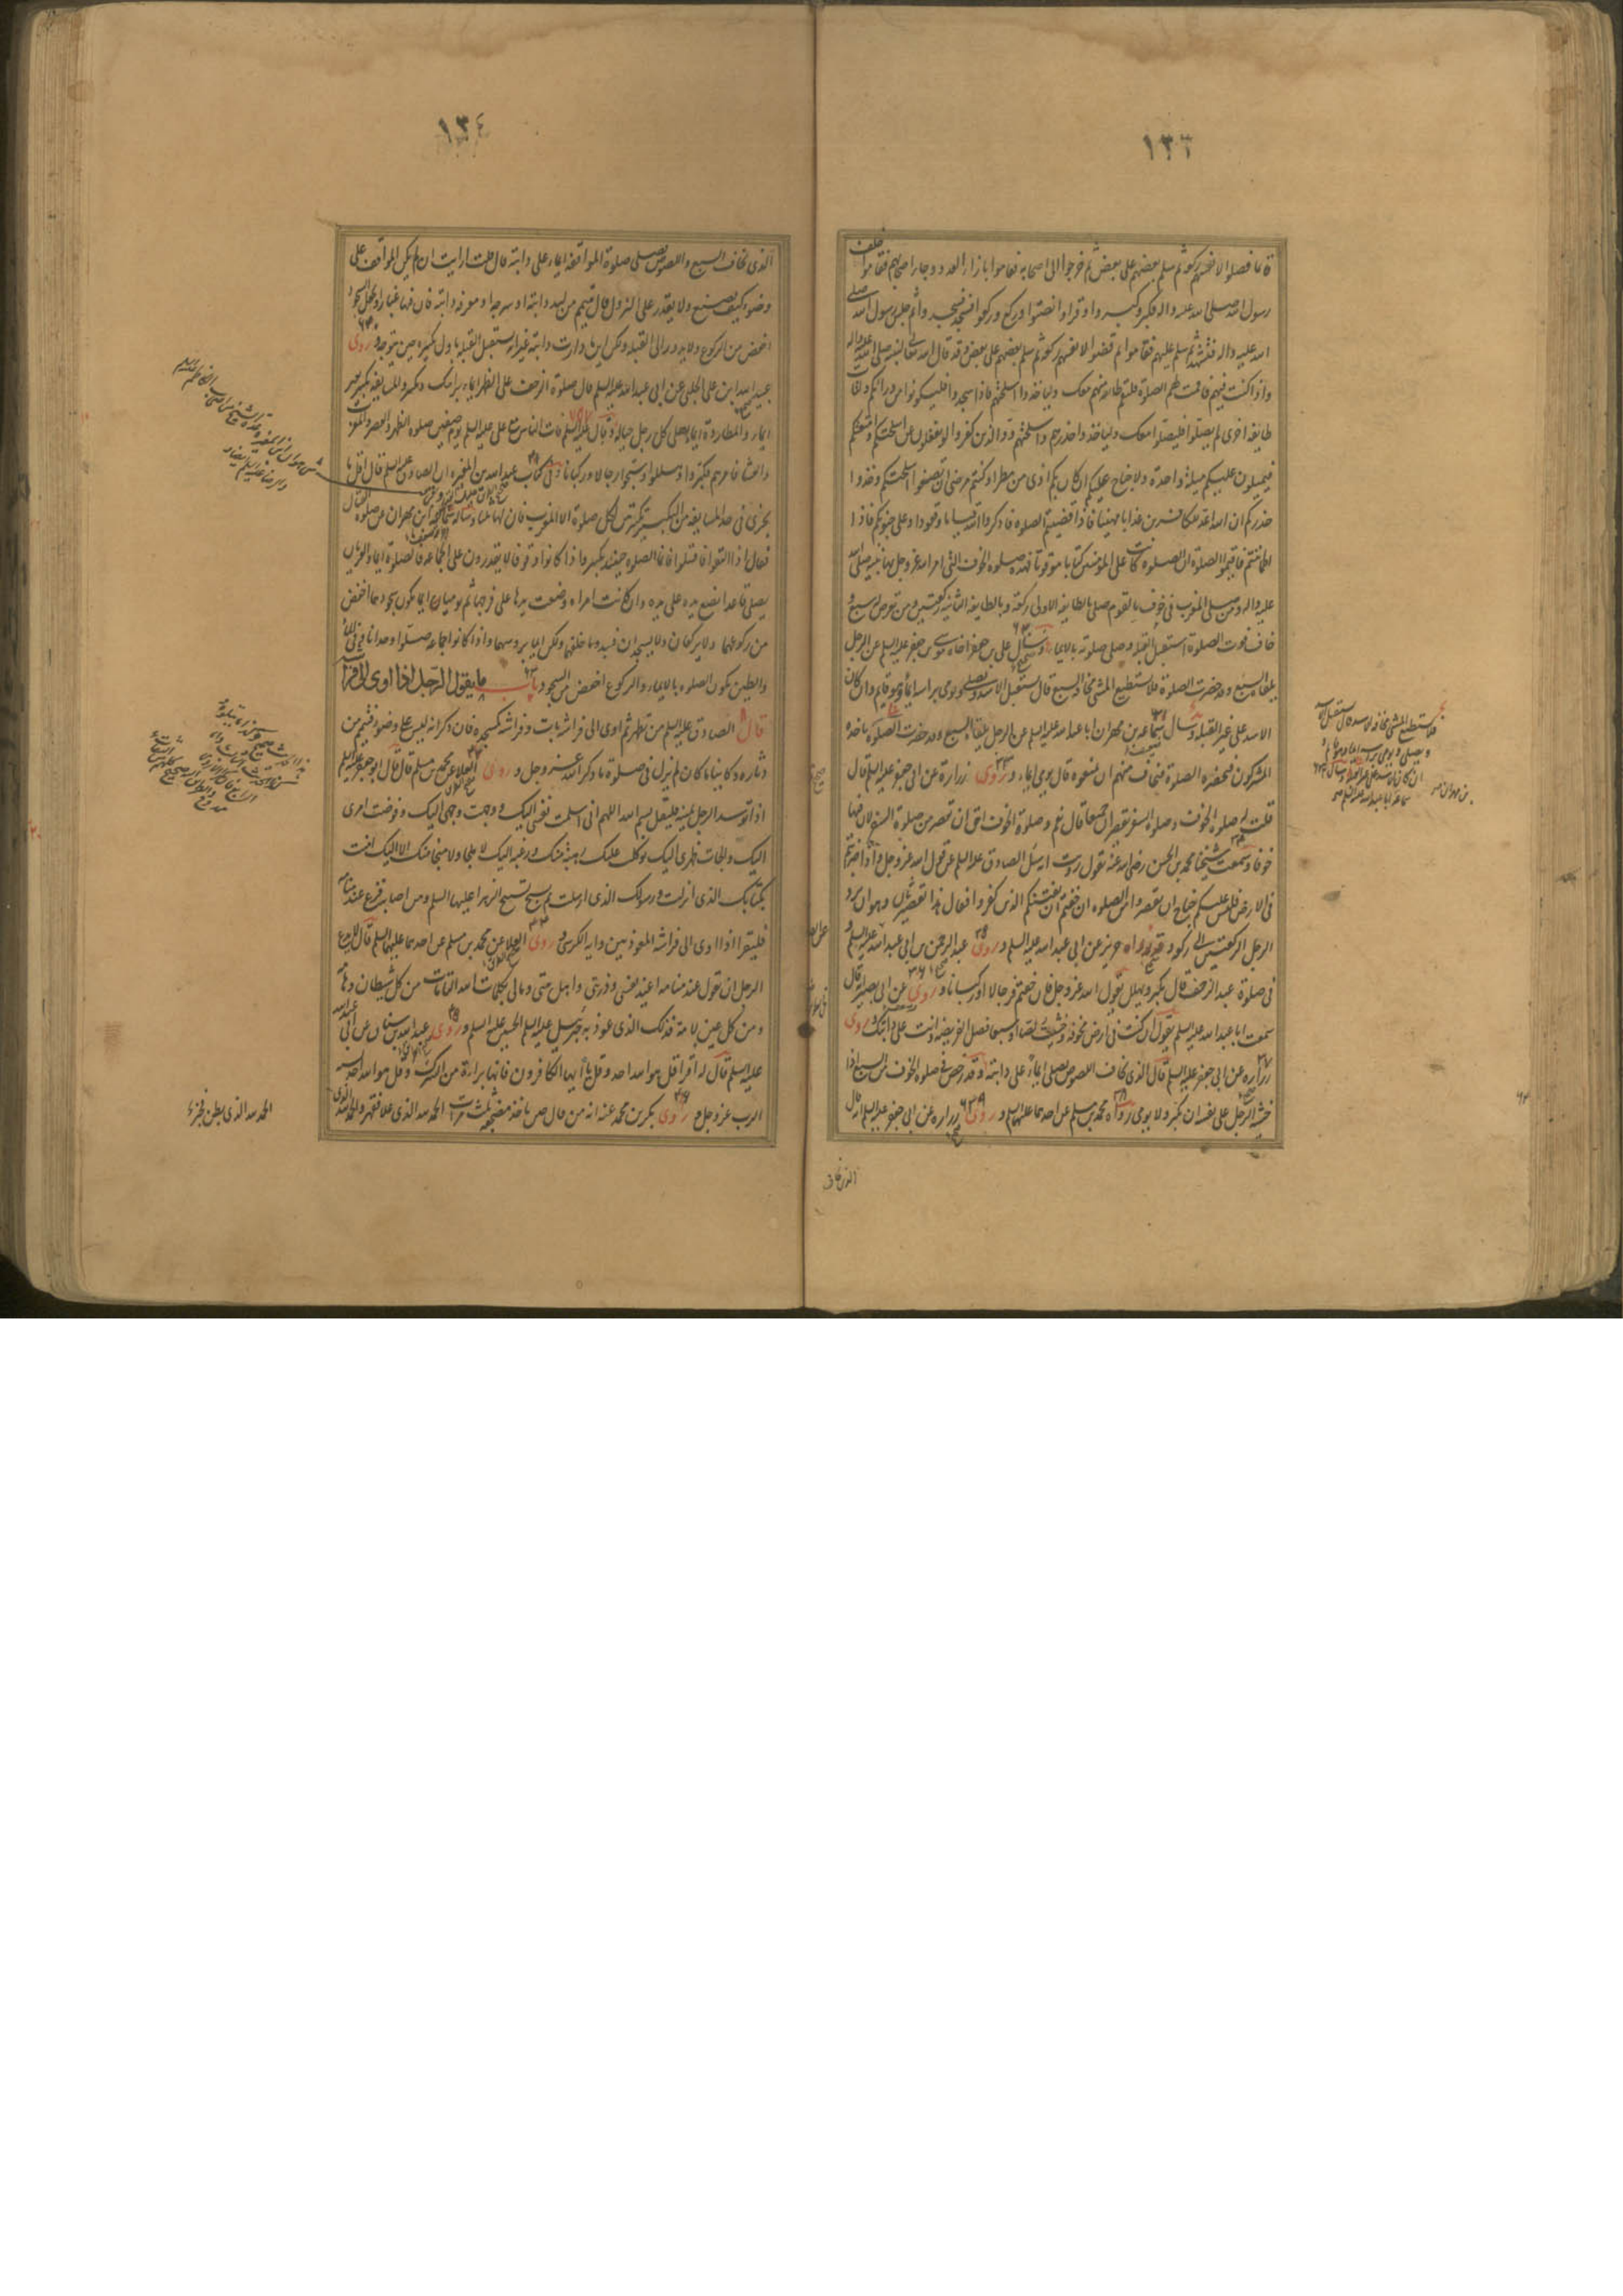 ١٣٣
قائما فصلوا لانفسهم ركعة ثم سلم بعضهم على بعض ثم خرجوا الى اصحابهم فقاموا بازاء العدو وجاء اصحابهم فقاموا خلف
رسول الله صلى الله عليه واله فكبر وكبروا وقرا وانصتوا وركع وركعوا فسجد وسجدوا ثم جلس رسول الله صلى
الله عليه واله فتشهد ثم سلم عليهم فقاموا ثم قضوا لانفسهم ركعة ثم سلم بعضهم على بعض وقد قال الله تعالى لنبيه صلى الله عليه واله
واذا كنت فيهم فاقمت لهم الصلوة فلتقم طائفة منهم معك ولياخذوا اسلحتهم فاذا سجدوا فليكونوا من ورائكم ولتات
طايفة اخرى لم يصلوا فليصلوا معك ولياخذوا حذرهم واسلحتهم ود الذين كفروا لو تغفلون عن اسلحتكم وامتعتكم
فيميلون عليكم ميلة واحدة ولا جناح عليكم ان كان بكم اذى من مطر او كنتم مرضى ان تضعوا اسلحتكم وخذوا
حذركم ان الله اعد للكافرين عذابا مهينا فاذا قضيتم الصلوة فاذكروا الله قياما وقعودا وعلى جنوبكم فاذا
اطماننتم فاقيموا الصلوة ان الصلوة كانت على المؤمنين كتابا موقوتا فهذه صلوة الخوف التي امر الله عز وجل بها نبيه صلى الله
عليه واله ومن صلى المغرب في خوف بالقوم صلى بالطايفة الاولى ركعة وبالطايفة الثانية ركعتين ومن تعرض له سبع و
خاف فوت الصلوة استقبل القبلة وصلى صلوته بالايماء وسئل على بن جعفر اخاه موسى بن جعفر عليه السلم عن الرجل
يلقاه السبع وقد حضرت الصلوة فلا يستطيع المشي مخافة السبع قال يستقبل الاسد ويصلى ويومي براسه ايماء وهو قايم وان كان
الاسد على غير القبلة وسال سماعة بن مهران ابا عبدالله عليه السلم عن الرجل يلقاه السبع وقد حضرت الصلوة ياخذه
المشركون فتحضره الصلوة فيخاف منهم ان يمنعوه قال يومي ايماء وروى زرارة عن ابى جعفر عليه السلم قال
قلت له صلوة الخوف وصلوة السفر تقصران جميعا قال نعم وصلوة الخوف احق ان تقصر من صلوة السفر لان فيها
خوفا وسمعت شيخنا محمد بن الحسن رضى الله عنه يقول رويت انه سئل الصادق عليه السلم عن قول الله عز وجل واذا ضربتم
في الارض فليس عليكم جناح ان تقصروا من الصلوة ان خفتم ان يفتنكم الذين كفروا فقال هذا تقصير ثان وهو ان يرد
الرجل الركعتين الى ركعة وقد رواه حريز عن ابى عبدالله عليه السلم وروى عبدالرحمن بن ابى عبدالله عليه السلم
في صلوة عند الزحف قال يكبر ويهلل يقول الله عز وجل فان خفتم فرجالا او ركبانا وروى عن ابى بصير قال
سمعت ابا عبدالله عليه السلم يقول ان كنت فى ارض مخوفة فخشيت لصا او سبعا فصل الفريضة وانت على دابتك وروى
زرارة عن ابى جعفر عليه السلم قال الذى يخاف اللصوص يصلى ايماء على دابته وقد رخص فى صلوة الخوف من السبع اذا
خشيه الرجل على نفسه ان يكبر ولا يومي رواه محمد بن مسلم عن احدهما عليهما السلم وروى زرارة عن ابى جعفر عليه السلم انه قال
الذى يخاف
١٣٤
الذى يخاف السبع واللصوص يصلى صلوة المواقفة ايماء على دابته قال قلت ارايت ان لم يكن المواقف على
وضوء كيف يصنع ولا يقدر على النزول قال يتيمم من لبد دابته او سرجه او معرفة دابته فان فيها غبارا ويجعل السجود
اخفض من الركوع ولا يدور الى القبلة ولكن اينما دارت دابته غير انه يستقبل القبلة باول تكبيرة حين يتوجه وروى
عبيدالله بن على الحلبى عن ابى عبدالله عليه السلم قال صلوة الزحف على الظهر ايماء براسك وتكبير والمسايفة تكبير بغير
ايماء والمطاردة ايماء يصلى كل رجل على حياله وقال عليه السلم فات الناس مع على عليه السلم يوم صفين صلوة الظهر والعصر والمغرب
والعشاء فامرهم فكبروا وهللوا وسبحوا رجالا وركبانا وفى كتاب عبدالله بن المغيرة ان الصادق عليه السلم قال اقل ما
يجزى فى حد المسايفة من التكبير تكبيرتان لكل صلوة الا المغرب فان لها ثلثا وساله سماعة بن مهران عن صلوة القتال
فقال اذا التقوا فاقتتلوا فانما الصلوة حينئذ تكبير واذا كانوا وقوفا لا يقدرون على الجماعة فالصلوة ايماء والعريان
يصلى قاعدا يضع يده على يده وان كانت امراة وضعت يدها على فرجها ثم يوميان ايماء يكون سجودهما اخفض
من ركوعهما ولا يركعان ولا يسجدان فيبدو ما خلفهما ولكن ايماء بروسهما واذا كانوا جماعة صلوا وحدانا وفى الماء
والطين يكون الصلوة بالايماء والركوع اخفض من السجود باب ما يقول الرجل اذا اوى الى فراشه
قال الصادق عليه السلم من تطهر ثم اوى الى فراشه بات وفراشه كمسجده فان ذكر انه ليس على وضوء فتيمم من
دثاره وكاينا ما كان لم يزل فى صلوة ما ذكر الله عز وجل وروى العلا عن محمد بن مسلم قال قال ابو جعفر عليه السلم
اذا توسد الرجل يمينه فليقل بسم الله اللهم انى اسلمت نفسى اليك ووجهت وجهى اليك وفوضت امرى
اليك والجات ظهرى اليك توكلت عليك رهبة منك ورغبة اليك لا ملجا ولا منجا منك الا اليك امنت
بكتابك الذى انزلت ورسولك الذى ارسلت ثم يسبح تسبيح الزهرا عليها السلم ومن اصابه فزع عند منامه
فليقرا اذا اوى الى فراشه المعوذتين واية الكرسى وروى العلا عن محمد بن مسلم عن احدهما عليهما السلم قال لا يدع
الرجل ان يقول عند منامه اعيذ نفسى وذريتى واهل بيتى ومالى بكلمات الله التامات من كل شيطان وهامة
ومن كل عين لامة فذلك الذى عوذ به جبرئيل عليه السلم الحسين عليه السلم وروى عبدالله بن سنان عن ابى عبدالله
عليه السلم قال له اقرا قل هو الله احد وقل يا ايها الكافرون فانها براءة من الشرك وقل هو الله احد نسبة
الرب عز وجل وروى بكر بن محمد عنه انه من قال حين ياخذ مضجعه ثلث مرات الحمد لله الذى علا فقهر والحمد لله الذى
الحمد لله الذى بطن فخبر